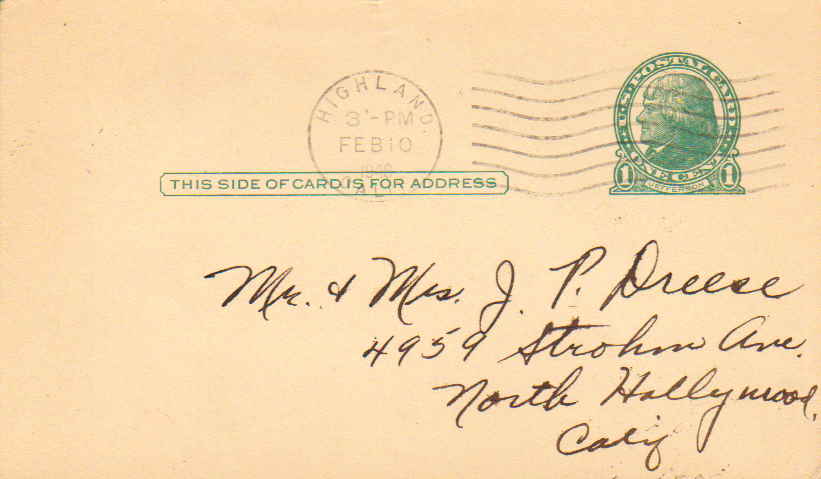 HIGHLAND
3 - PM
FEB 10
1940
CAL
U.S. POSTAL CARD
1 ONE CENT 1
JEFFERSON
THIS SIDE OF CARD IS FOR ADDRESS
Mr. & Mrs. J. P. Dreese
4959 Strohm Ave.
North Hollywood,
Calif